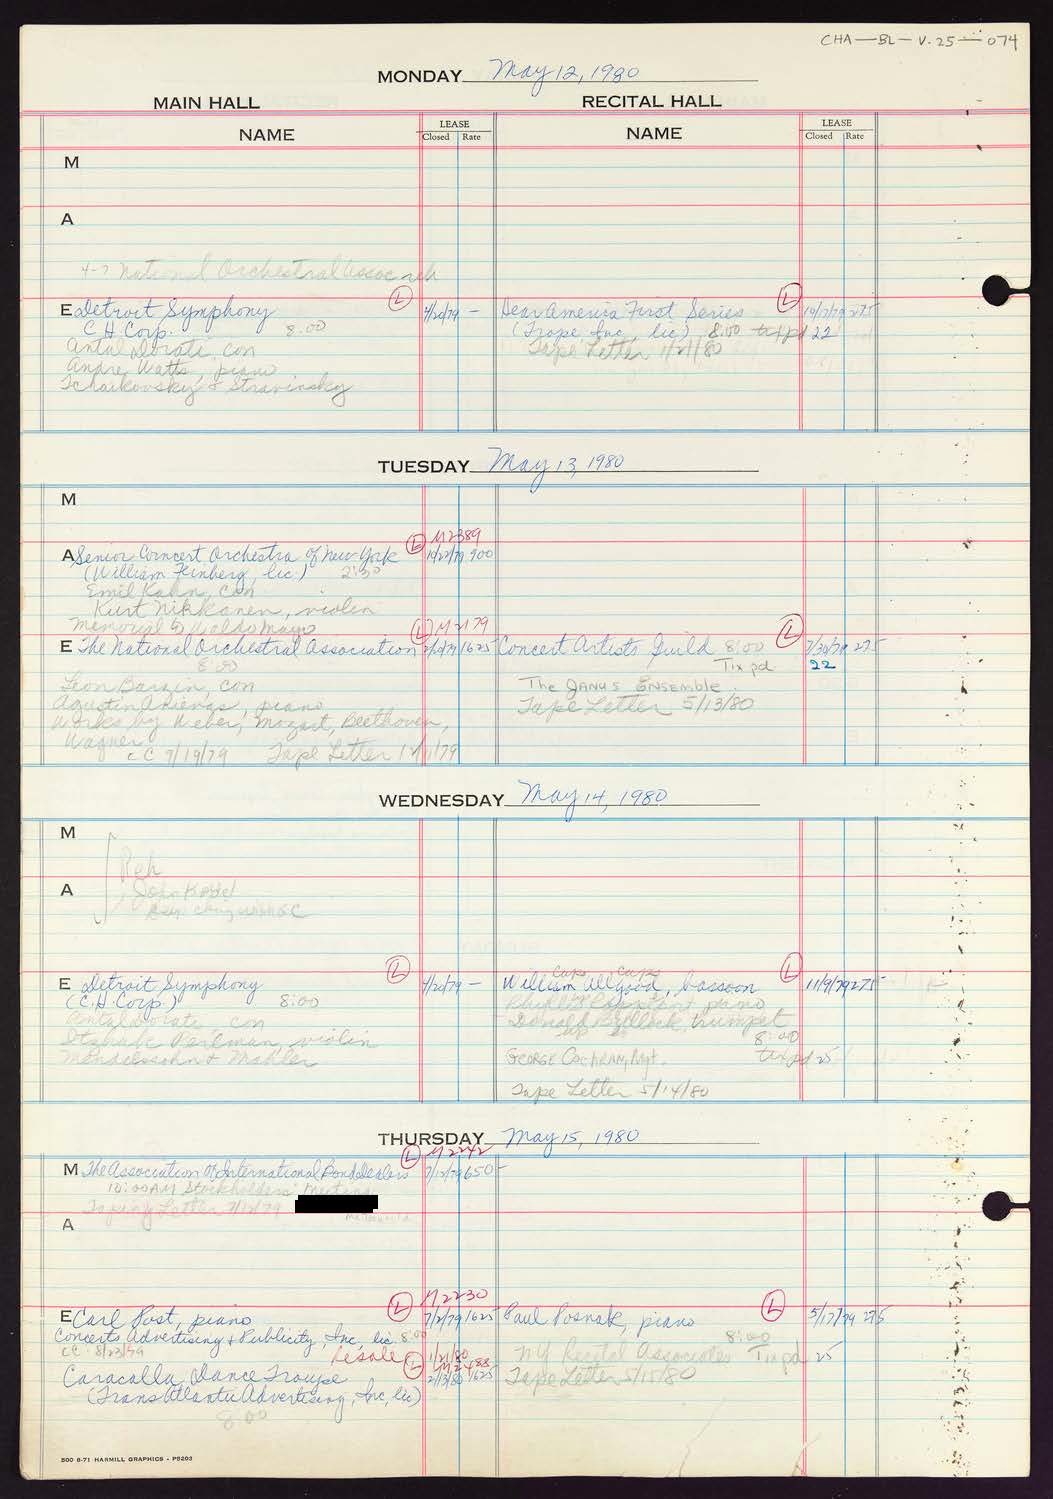 CHA-BL-V.25-074
MONDAY May 12, 1980
MAIN HALL RECITAL HALL
NAME LEASE Closed Rate NAME LEASE Closed Rate
M
A
4-7 National Orchestral Assoc reh
E Detroit Symphony L 4/20/79 -
C.H. Corp. 8:00
Antal Dorati, con
Andre Watts, piano
Tchaikovsky & Stravinsky
Hear America First Series L 10/2/79 275
(Trope Inc, lic) 8:00 tix pd 22
Tape Letter 1/21/80
TUESDAY May 13, 1980
M
M2389
A Senior Concert Orchestra of New York L 10/22/79 900
(William Feinberg, lic.) 2:30
Emil Kahn, con
Kurt Nikkanen, violin
Memorial to Waldo Mayo
L M2179
E The National Orchestral Association 1625
8:00
Leon Barzin, con
Agustin Anievas, piano
Works by Weber, Mozart, Beethoven,
Wagner
CC 9/19/79 Tape Letter
Concert Artists Guild 8:00 L 7/30/79 275
Tix pd 22
The Janus Ensemble
Tape Letter 5/13/80
WEDNESDAY May 14, 1980
M
Reh
A
E Detroit Symphony L 4/20/79 -
(C.H. Corp.) 8:00
Antal Dorati, con
Itzhak Perlman, violin
Mendelssohn & Mahler
caps caps L
William Allgood, bassoon 11/9/79 275
piano
Donald Bullock, trumpet
8:00
George Cochran, Mgt. tix pd 25
Tape Letter 5/14/80
THURSDAY May 15, 1980
L M2242
M The Association of International Bond Dealers 7/12/79 650-
10:00 AM Stockholders' Meeting
Taping Letter 7/12/79
A
L M2230
E Carl Post, piano 1625
Concerts Advertising & Publicity, Inc, lic. 8:00
CC 8/23/79
resale L 1/21/80
M2488
Caracalla Dance Troupe 2/13/80 1625
(TransAtlantic Advertising, Inc, lic)
8:00
Paul Posnak, piano L 5/17/79 275
8:00
NY Recital Associates Tix pd 25
Tape Letter 5/15/80
500 6-71 HARMILL GRAPHICS - P5203